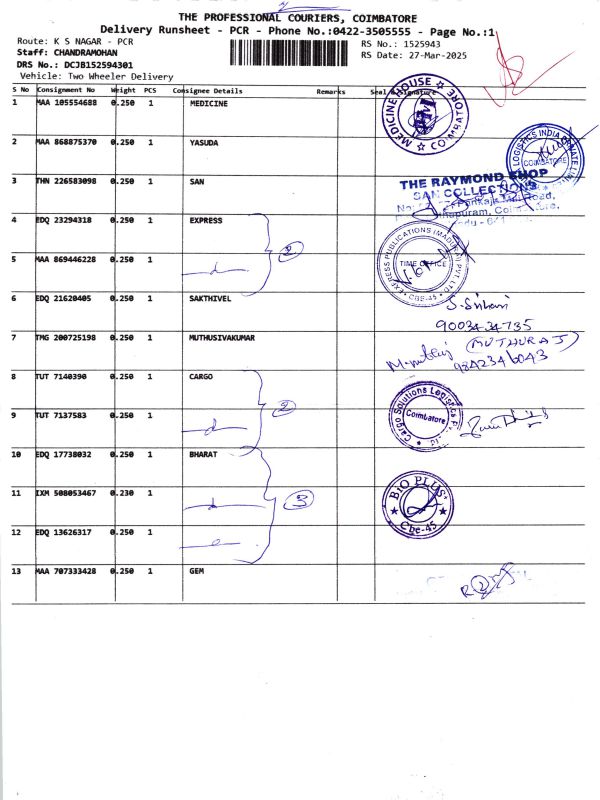 THE PROFESSIONAL COURIERS, COIMBATORE
Delivery Runsheet - PCR - Phone No.:0422-3505555 - Page No.:1
Route: K S NAGAR - PCR
RS No.: 1525943
Staff: CHANDRAMOHAN
RS Date: 27-Mar-2025
DRS No.: DCJB152594301
Vehicle: Two Wheeler Delivery
S No Consignment No Weight PCS Consignee Details Remarks Seal & Signature
1 MAA 105554688 0.250 1 MEDICINE
MEDICINE HOUSE COIMBATORE
2 MAA 868875370 0.250 1 YASUDA
LOGISTICS INDIA PRIVATE
COIMBATORE
3 THN 226583098 0.250 1 SAN
THE RAYMOND SHOP
SAN COLLECTIONS
4 EDQ 23294318 0.250 1 EXPRESS
2
EXPRESS PUBLICATIONS (MADURAI) PVT. LTD.
TIME OFFICE
CBE-45
5 MAA 869446228 0.250 1
6 EDQ 21620405 0.250 1 SAKTHIVEL
9003434735
7 TMG 200725198 0.250 1 MUTHUSIVAKUMAR
(MUTHURAJ)
9842346043
8 TUT 7140390 0.250 1 CARGO
2
Cargo Solutions Logistics
Coimbatore
9 TUT 7137583 0.250 1
10 EDQ 17738032 0.250 1 BHARAT
11 IXM 508053467 0.230 1
3
BIO PLUS
Cbe-45
12 EDQ 13626317 0.250 1
13 MAA 707333428 0.250 1 GEM